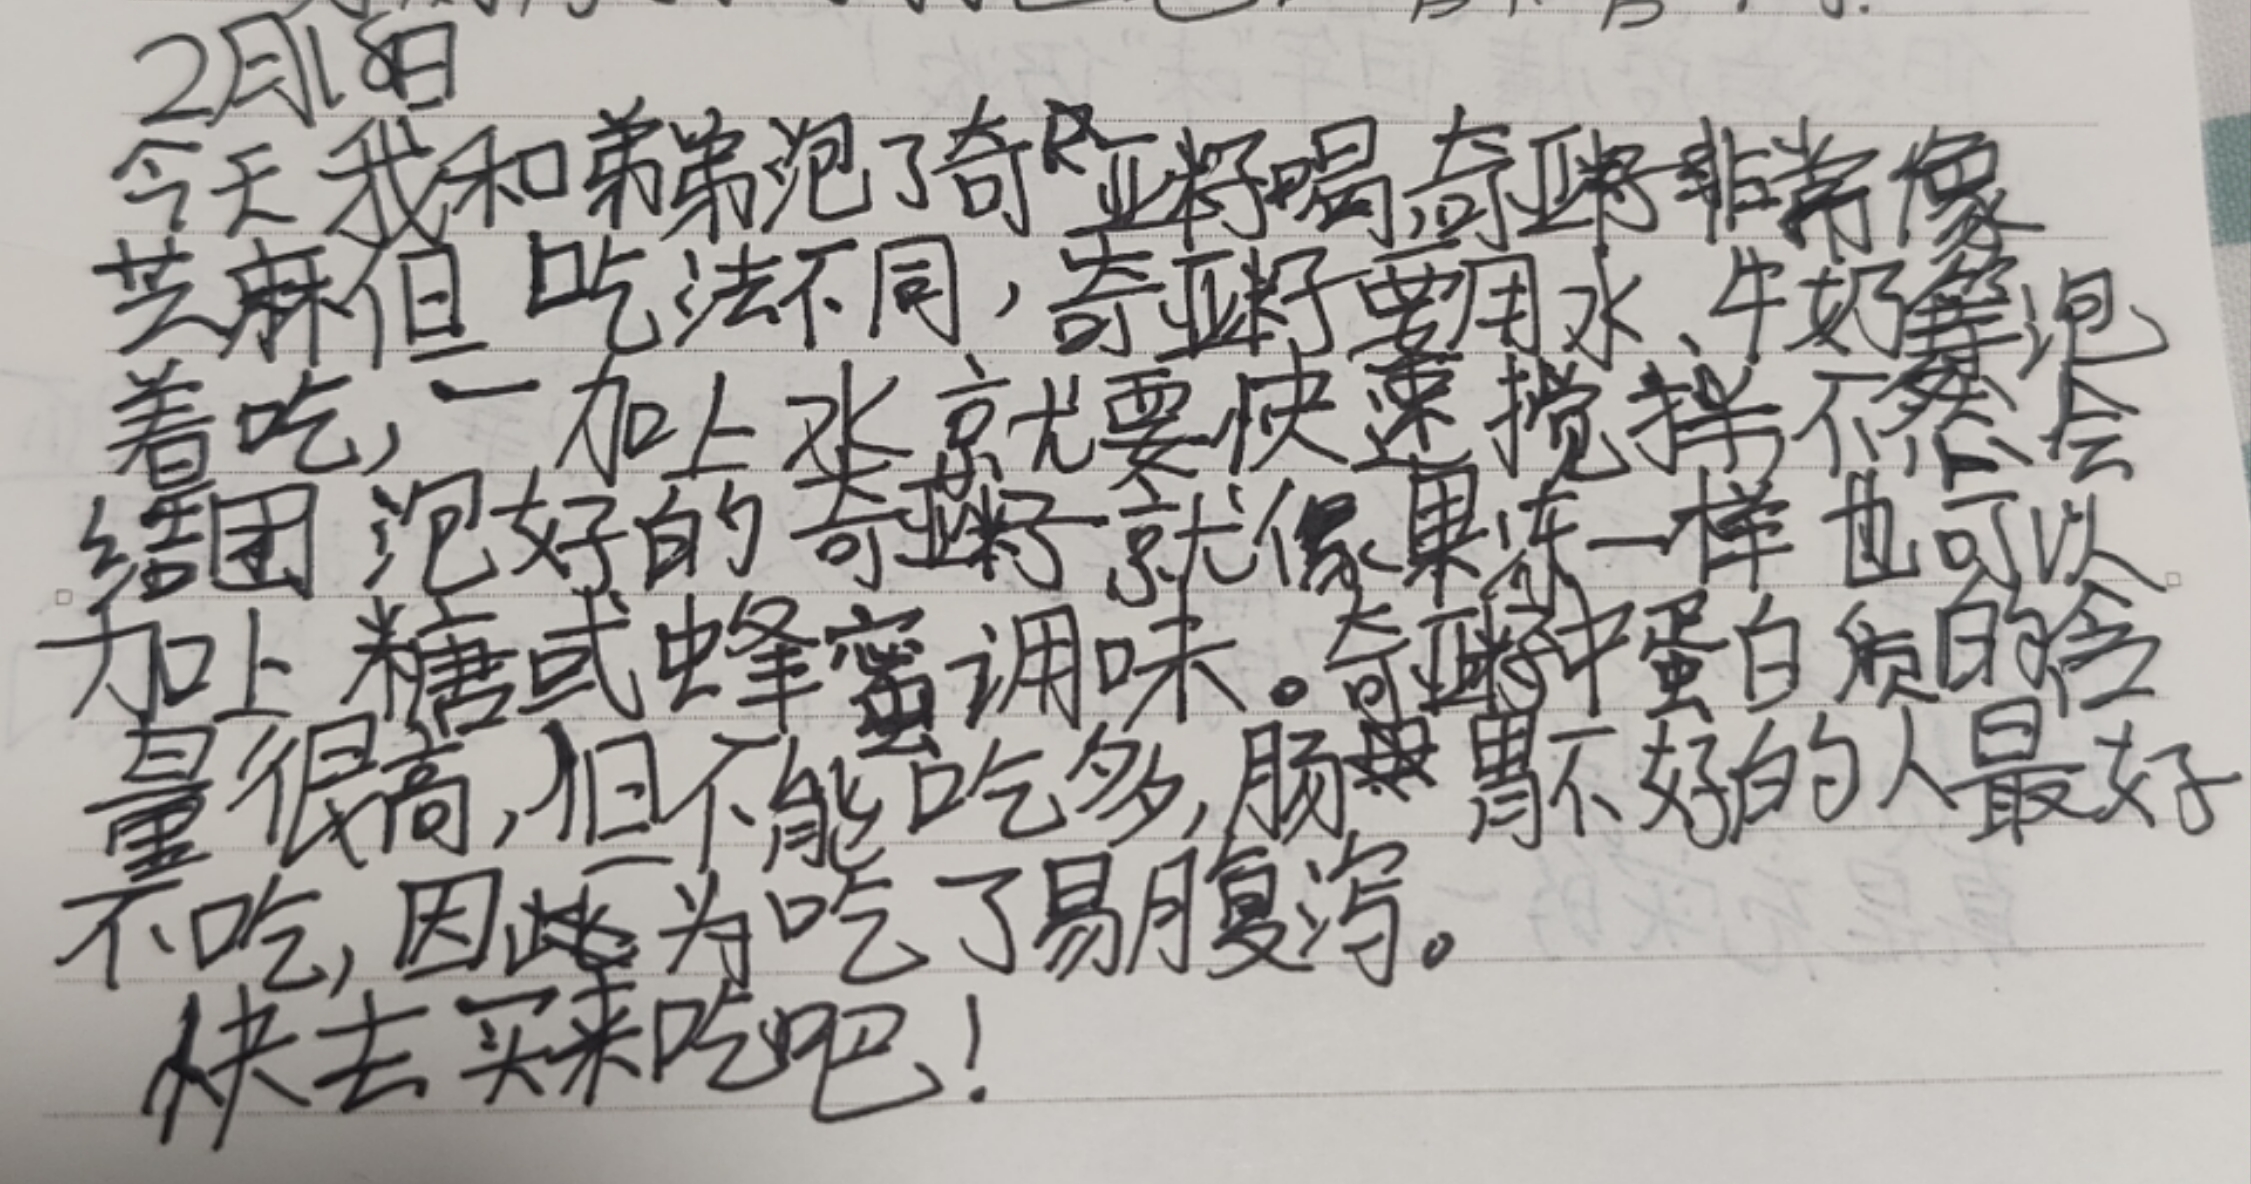 2月18日
今天我和弟弟泡了奇亚籽喝奇亚籽非常像
芝麻但吃法不同，奇亚籽要用水、牛奶等泡
着吃，一加上水就要快速搅拌不然会
结团泡好的奇亚籽就像果冻一样也可以
加上糖或蜂蜜调味。奇亚籽中蛋白质的含
量很高，但不能吃多，肠胃不好的人最好
不吃，因为吃了易腹泻。
快去买来吃吧！